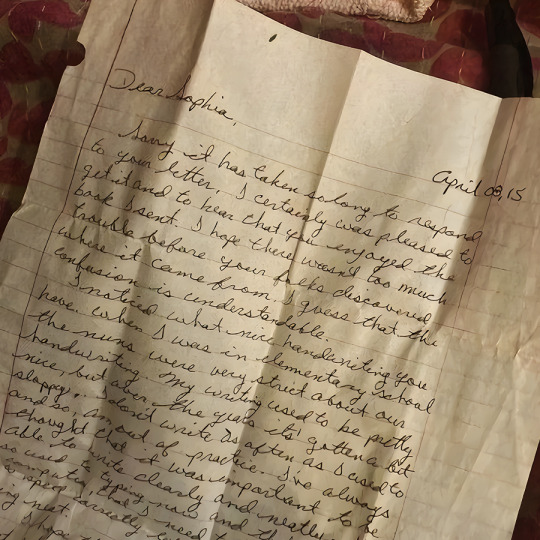 Dear Sophia,
April 08, 15
Sorry it has taken so long to respond
to your letter. I certainly was pleased to
get it and to hear that you enjoyed the
book I sent. I hope there wasn't too much
trouble before your folks discovered
where it came from. I guess that the
confusion is understandable.
I noticed what nice handwriting you
have. When I was in elementary school
the nuns were very strict about our
handwriting. My writing used to be pretty
nice, but over the years its gotten a bit
sloppy. I don't write as often as I used to
and so, am out of practice. I've always
thought that it was important to be
able to write clearly and neatly
so used to typing now and the
computer, that I need to
I hope